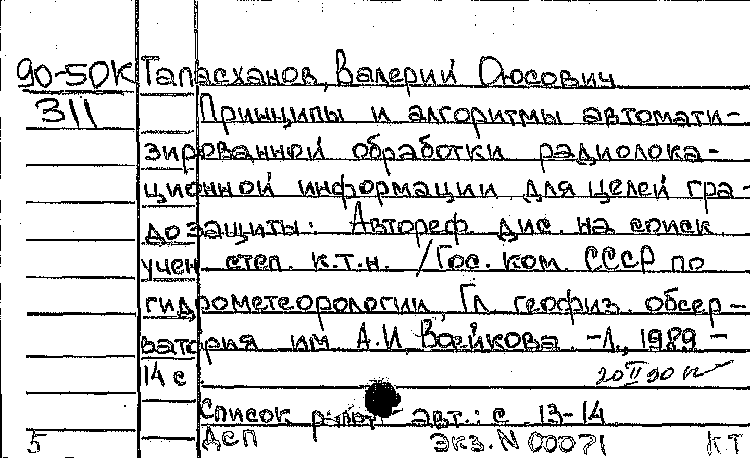 90-50К Тапасханов, Валерий Оюсович
311 Принципы и алгоритмы автомати-
зированной обработки радиолока-
ционной информации для целей гра-
дозащиты: Автореф. дис. на соиск.
учен. степ. к.т.н. /Гос. ком. СССР по
гидрометеорологии, Гл. геофиз. обсер-
ватория им. А.И. Воейкова. -Л., 1989 -
14 с.
20 II 90
Список работ авт.: с. 13-14
5 Деп Экз. N 00071 КТ